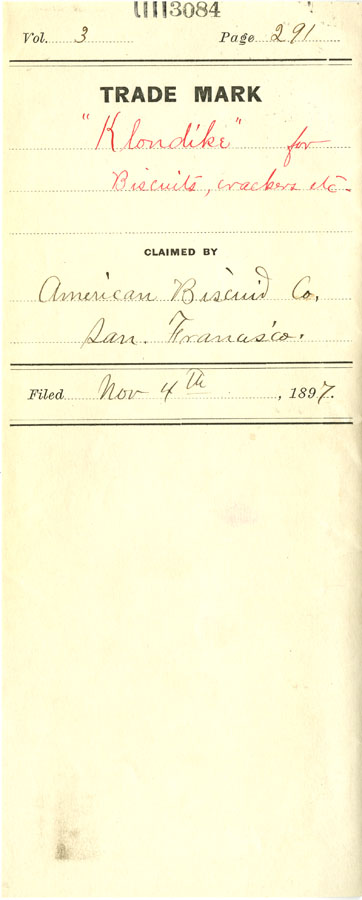 3084
Vol. 3 Page 291
TRADE MARK
"Klondike" for
Biscuits, crackers etc.
CLAIMED BY
American Biscuid Co.
San. Francisco.
Filed Nov 4th, 1897.